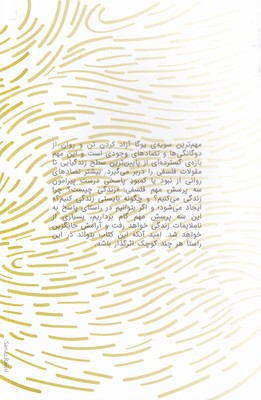 مهم‌ترین سویه‌ی یوگا آزاد کردن تن و روان از
دوگانگی‌ها و تضادهای وجودی است و این مهم
بازه‌ی گسترده‌ای از پایین‌ترین سطح زندگیایی تا
مقولات فلسفی را دربر می‌گیرد. بیشتر تضادهای
روانی از نبود یا کمبود پاسخی درست پیرامون
سه پرسش مهم فلسفی «زندگی چیست؟ چرا
زندگی می‌کنیم؟ و چگونه بایستی زندگی کنیم»که
ایجاد می‌شود؛ و اگر بتوانیم در راستای پاسخ به
این سه پرسش مهم گام برداریم، بسیاری از
ناملایمات زندگی خواهد رفت و آرامش جایگزین
خواهد شد. امید آنکه این کتاب بتواند در این
راستا هر چند کوچک اثرگذار باشد.